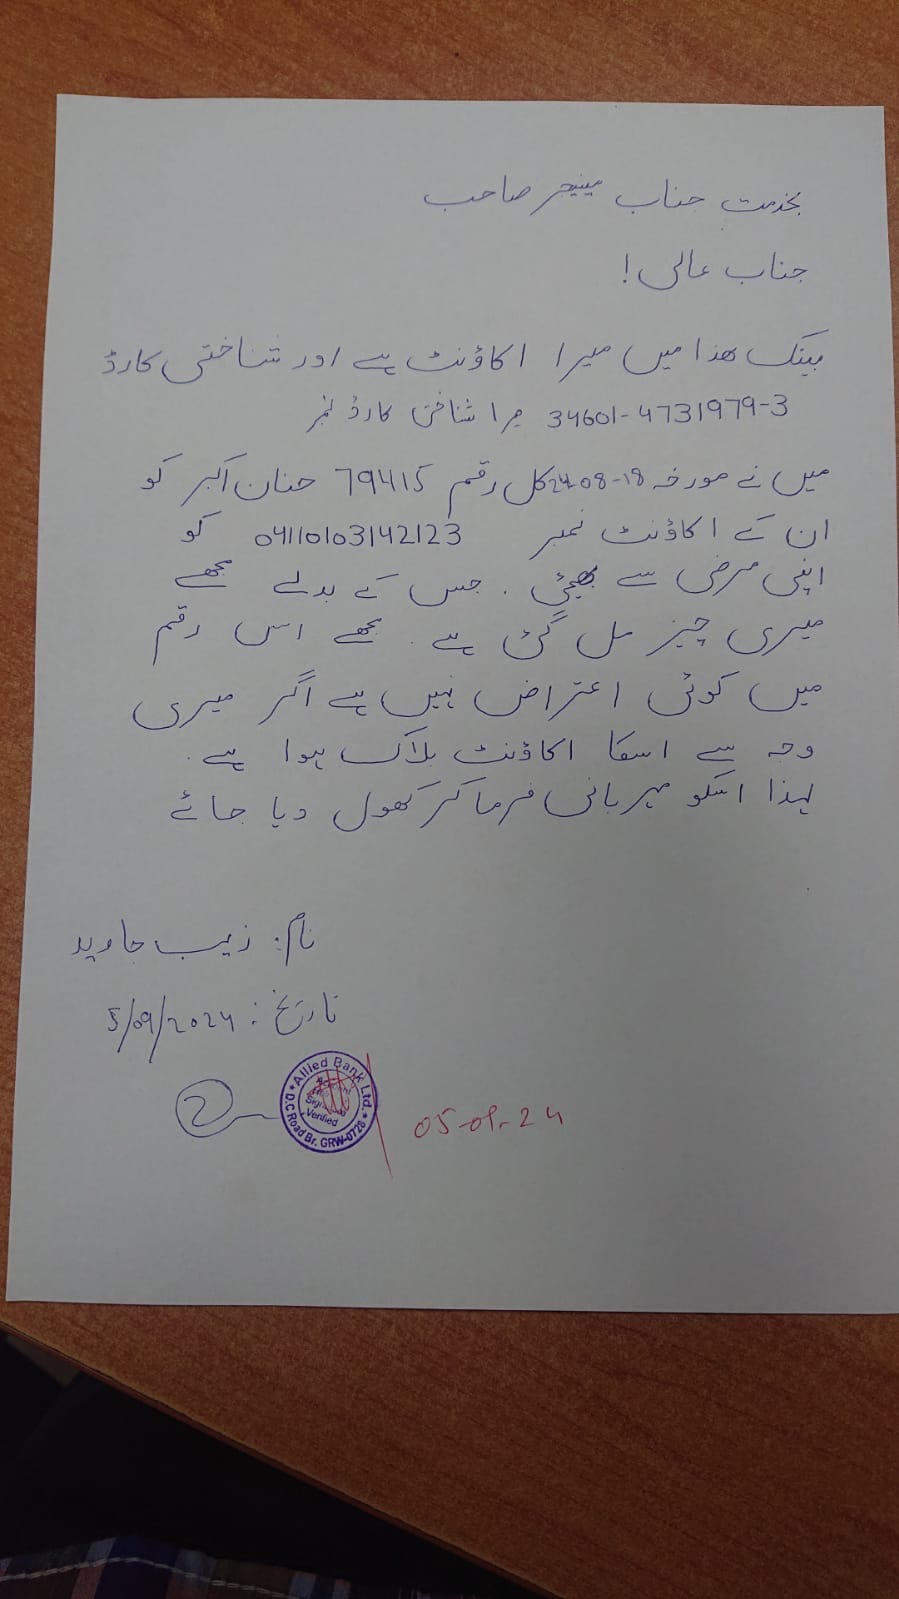 بخدمت جناب مینیجر صاحب
جناب عالی!
بینک ھذا میں میرا اکاؤنٹ ہے اور شناختی کارڈ
34601-4731979-3 میرا شناختی کارڈ نمبر
میں نے مورخہ 18-08-24 کل رقم 79415 حنان اکبر کو
ان کے اکاؤنٹ نمبر 04110103142123 کو
اپنی مرضی سے بھیجی. جس کے بدلے مجھے
میری چیز مل گئی ہے. مجھے اس رقم
میں کوئی اعتراض نہیں ہے اگر میری
وجہ سے اسکا اکاؤنٹ بلاک ہوا ہے.
لہذا اسکو مہربانی فرما کر کھول دیا جائے
نام: زیب جاوید
تاریخ: 5/09/2024
Allied Bank Ltd.
Verified
D.C Road Br. GRW-0728
05-09-24